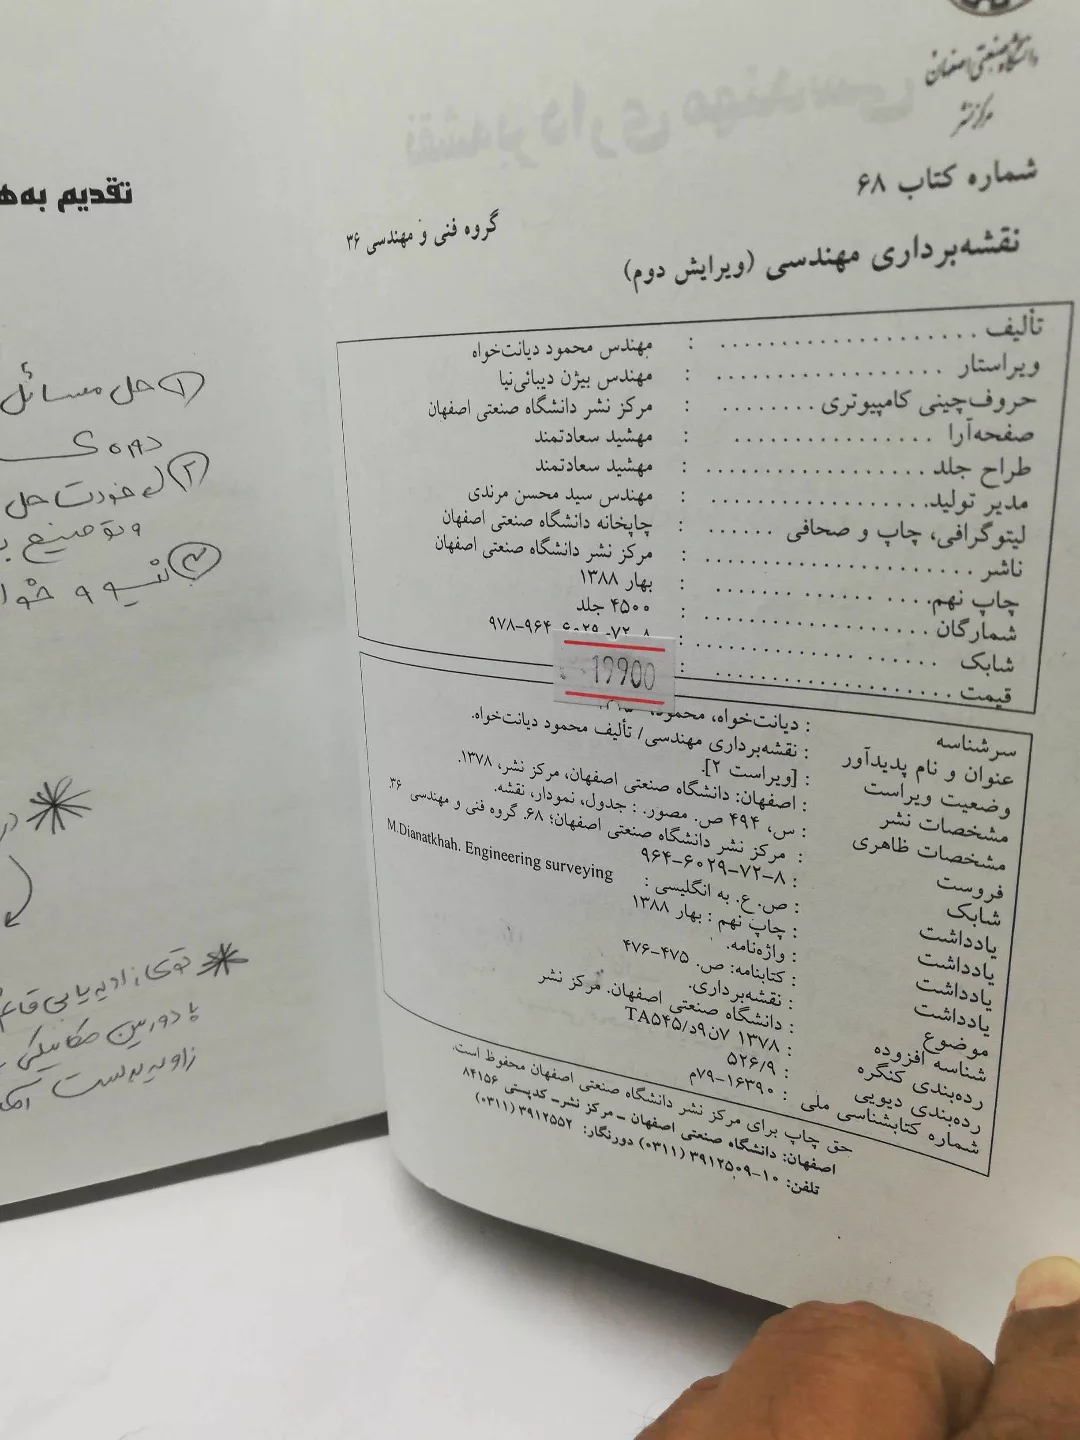 دانشگاه صنعتی اصفهان
مرکز نشر
شماره کتاب ۶۸
گروه فنی و مهندسی ۳۶
نقشه‌برداری مهندسی (ویرایش دوم)
تألیف : مهندس محمود دیانت‌خواه
ویراستار : مهندس بیژن دیبائی‌نیا
حروف‌چینی کامپیوتری : مرکز نشر دانشگاه صنعتی اصفهان
صفحه‌آرا : مهشید سعادتمند
طراح جلد : مهشید سعادتمند
مدیر تولید : مهندس سید محسن مرندی
لیتوگرافی، چاپ و صحافی : چاپخانه دانشگاه صنعتی اصفهان
ناشر : مرکز نشر دانشگاه صنعتی اصفهان
چاپ نهم : بهار ۱۳۸۸
شمارگان : ۴۵۰۰ جلد
شابک : ۹۷۸-۹۶۴-۶۰۲۹-۷۲-۸
قیمت :
19900
سرشناسه : دیانت‌خواه، محمود،
عنوان و نام پدیدآور : نقشه‌برداری مهندسی/ تألیف محمود دیانت‌خواه.
وضعیت ویراست : [ویراست ۲].
مشخصات نشر : اصفهان: دانشگاه صنعتی اصفهان، مرکز نشر، ۱۳۷۸.
مشخصات ظاهری : س، ۴۹۴ ص. مصور. : جدول، نمودار، نقشه.
فروست : مرکز نشر دانشگاه صنعتی اصفهان؛ ۶۸. گروه فنی و مهندسی ۳۶.
شابک : ۹۶۴-۶۰۲۹-۷۲-۸
یادداشت : ص. ع. به انگلیسی : M.Dianatkhah. Engineering surveying
یادداشت : چاپ نهم : بهار ۱۳۸۸
یادداشت : واژه‌نامه.
یادداشت : کتابنامه: ص. ۴۷۵-۴۷۶
موضوع : نقشه‌برداری.
شناسه افزوده : دانشگاه صنعتی اصفهان. مرکز نشر
رده‌بندی کنگره : ۱۳۷۸ ۷ن۹د/TA۵۴۵
رده‌بندی دیویی : ۵۲۶/۹
شماره کتابشناسی ملی : ۱۶۳۹۰-۷۹م
حق چاپ برای مرکز نشر دانشگاه صنعتی اصفهان محفوظ است.
اصفهان: دانشگاه صنعتی اصفهان – مرکز نشر– کدپستی ۸۴۱۵۶
تلفن: ۱۰-۳۹۱۲۵۰۹ (۰۳۱۱) دورنگار: ۳۹۱۲۵۵۲ (۰۳۱۱)
تقدیم به
① حل مسائل
دوره‌ی
② خودت حل
و توضیح
③
در
توی زاویه یابی
با دوربین مکانیکی
زاویه بدست